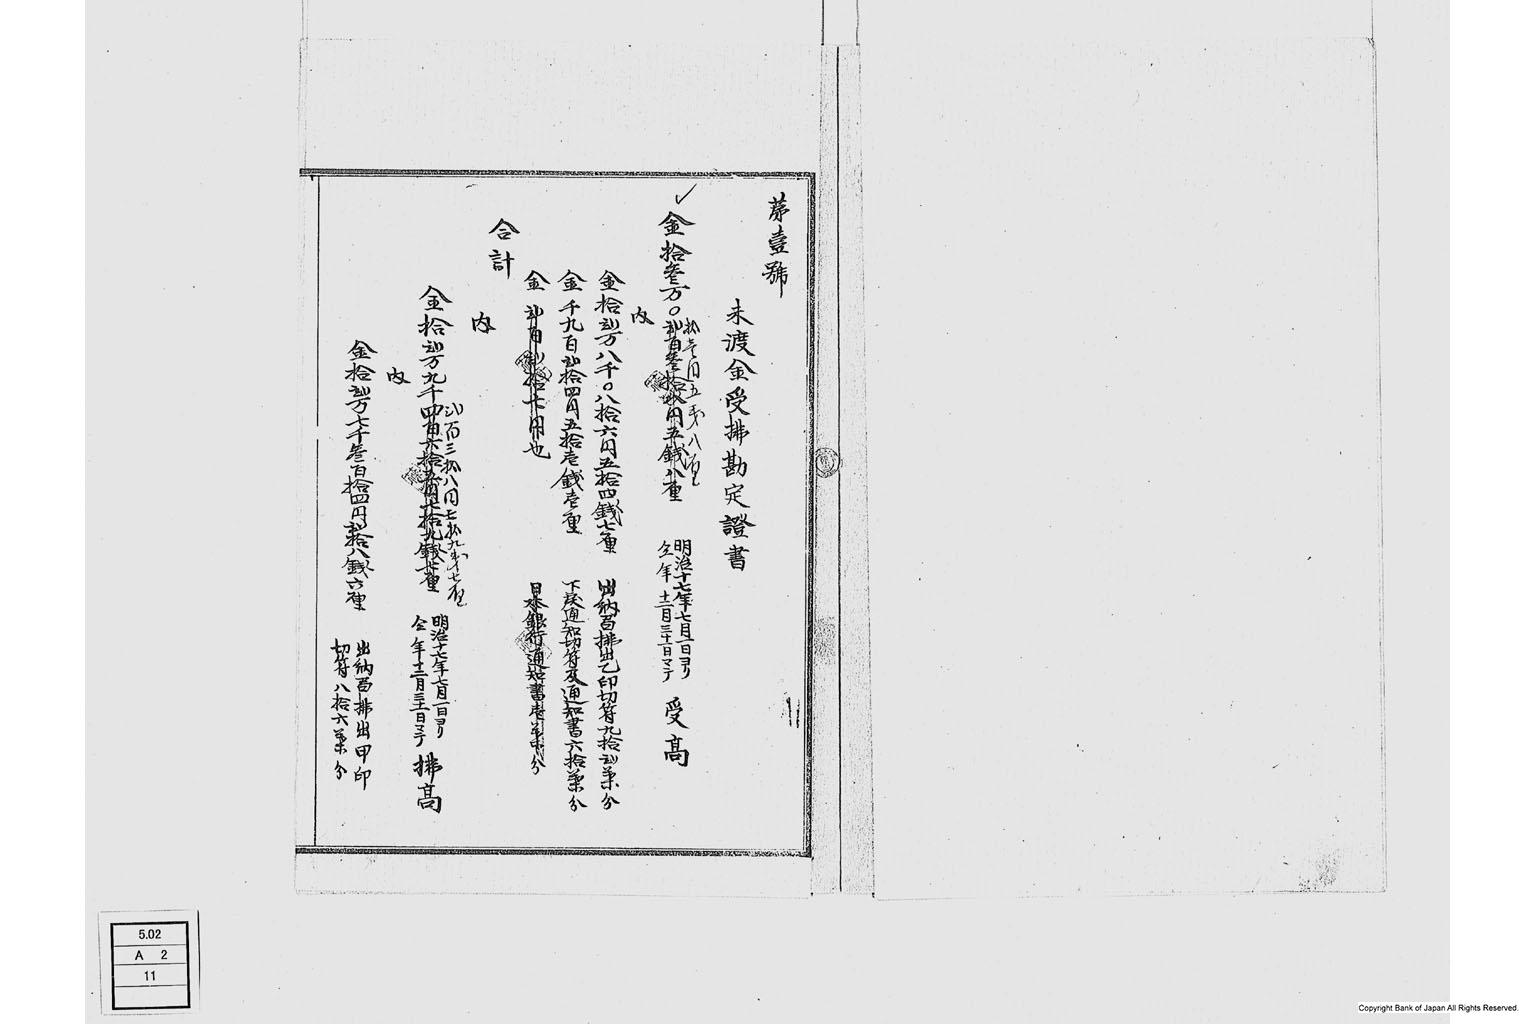 第壹號
未渡金受拂勘定證書
金拾叄万〇弐百叄拾弐円五銭八厘
拾壱円五銭八厘
明治十七年七月一日ヨリ
仝年十二月三十一日マテ
受高
内
金拾弐万八千〇八拾六円五拾四銭七厘 出納局拂出乙印切符九拾弐葉分
金千九百弐拾四円五拾壱銭壱厘 下戻通知切符及通知書六拾葉分
金弐百弐拾七円也 日本銀行通知書壱葉分
合計
内
金拾弐万九千四百六拾五円七拾九銭七厘
弐百三拾八円七拾九銭七厘
明治十七年七月一日ヨリ
仝年十二月三十一日マテ
拂高
内
金拾弐万七千叄百拾四円弐拾八銭六厘
出納局拂出甲印
切符八拾六葉分
5.02
A 2
11
Copyright Bank of Japan All Rights Reserved.